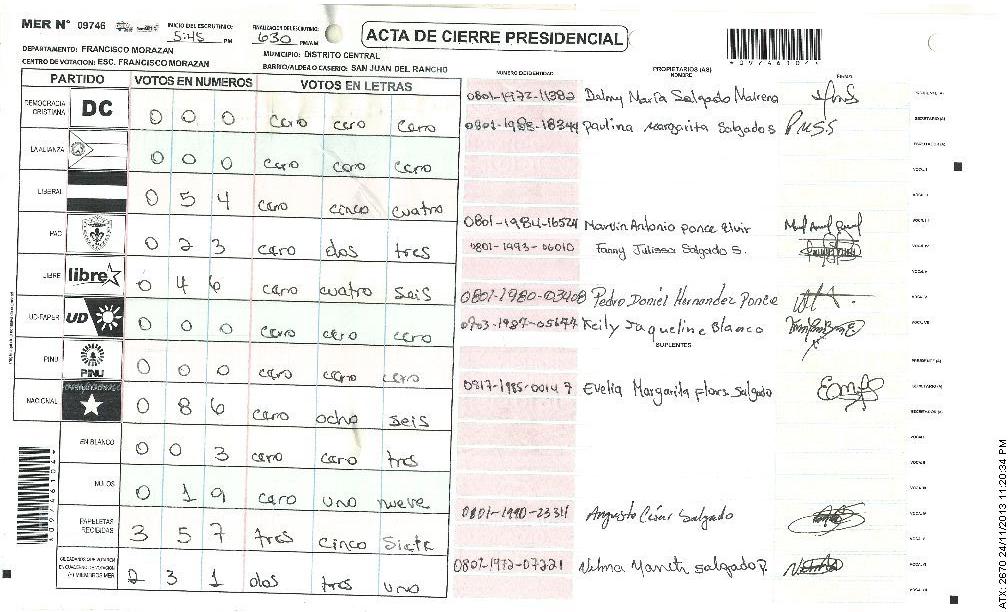 MER N° 09746 INICIO DEL ESCRUTINIO: 5:45 PM FINALIZACION DEL ESCRUTINIO: 630 PM/AM
ACTA DE CIERRE PRESIDENCIAL
DEPARTAMENTO: FRANCISCO MORAZAN MUNICIPIO: DISTRITO CENTRAL
CENTRO DE VOTACION: ESC. FRANCISCO MORAZAN BARRIO/ALDEA O CASERIO: SAN JUAN DEL RANCHO
PARTIDO VOTOS EN NUMEROS VOTOS EN LETRAS
DEMOCRACIA CRISTIANA DC 0 0 0 cero cero cero
LA ALIANZA 0 0 0 cero cero cero
LIBERAL 0 5 4 cero cinco cuatro
PAC 0 2 3 cero dos tres
LIBRE libre 0 4 6 cero cuatro seis
UD-FAPER UD 0 0 0 cero cero cero
PINU PINU 0 0 0 cero cero cero
NACIONAL 0 8 6 cero ocho seis
EN BLANCO 0 0 3 cero cero tres
NULOS 0 1 9 cero uno nueve
PAPELETAS RECIBIDAS 3 5 7 tres cinco siete
2 3 1 dos tres uno
NUMERO DE IDENTIDAD PROPIETARIOS (AS) NOMBRE FIRMA
0801-1972-11382 Delmy María Salgado Mairena
0801-1988-18344 Paulina Margarita Salgado S PMSS
0801-1984-16524 Marvin Antonio Ponce Elvir
0801-1993-06010 Fanny Julissa Salgado S.
0801-1980-03408 Pedro Daniel Hernandez Ponce
0703-1987-05644 Keily Jaqueline Blanco
SUPLENTES
0817-1985-00147 Evelia Margarita Flors Salgado
0801-1990-23311 Augusto César Salgado
0801-1972-07221 Nelma Salgado P.
ATX: 2670 24/11/2013 11:20:34 PM